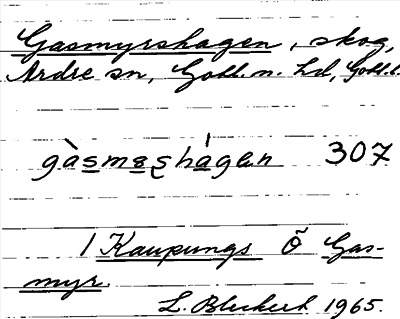 Gasmyrshagen, skog,
Ardre sn, Gotl. n. hd, Gotl. l.
gàsmεshágεn 307
1 Kaupungs Õ Gas-
myr.
L. Bleckert 1965.